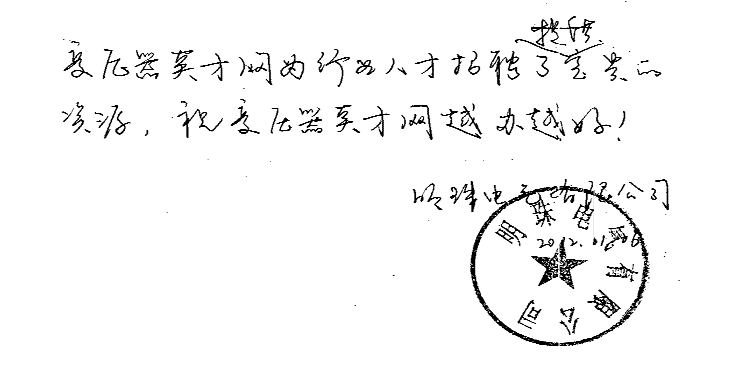 提供
变压器英才网为行业人才招聘了宝贵的
资源，祝变压器英才网越办越好！
明珠电气有限公司
2012.01.06
明珠电气有限公司